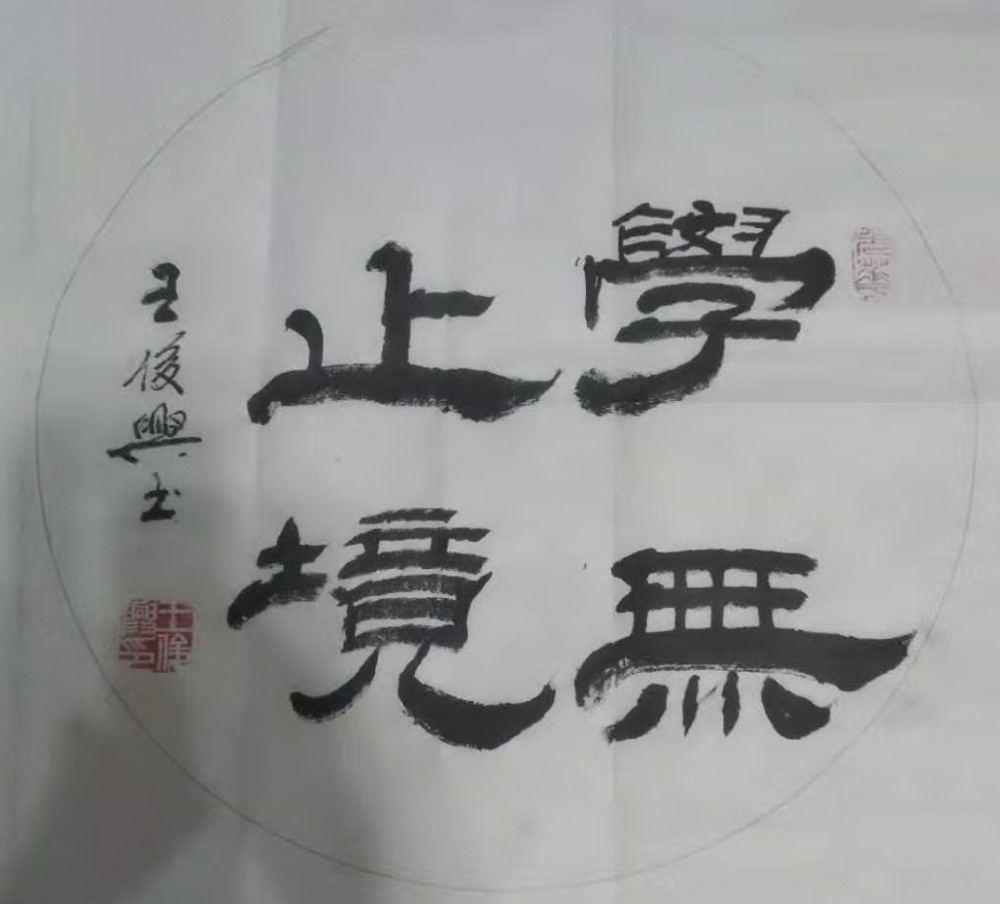 學無
止境
王俊興书
王俊興印